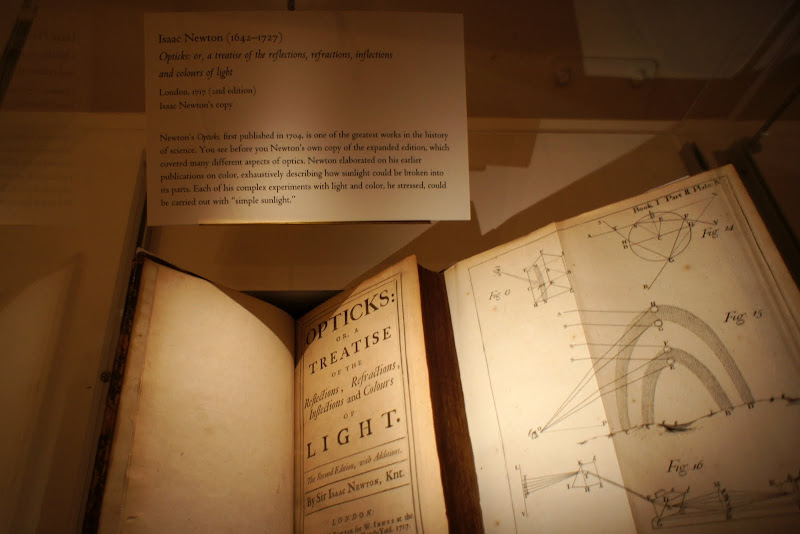 Isaac Newton (1642–1727)
Opticks: or, a treatise of the reflections, refractions, inflections
and colours of light
London, 1717 (2nd edition)
Isaac Newton's copy
Newton's Opticks, first published in 1704, is one of the greatest works in the history
of science. You see before you Newton's own copy of the expanded edition, which
covered many different aspects of optics. Newton elaborated on his earlier
publications on color, exhaustively describing how sunlight could be broken into
its parts. Each of his complex experiments with light and color, he stressed, could
be carried out with "simple sunlight."
OPTICKS:
OR, A
TREATISE
OF THE
Reflections, Refractions,
Inflections and Colours
OF
LIGHT.
The Second Edition, with Additions.
By Sir ISAAC NEWTON, Knt.
LONDON:
for W. INNYS at the
Yard. 1717.
Book I Part II Plate
Fig. 14
Fig. 15
Fig. 16